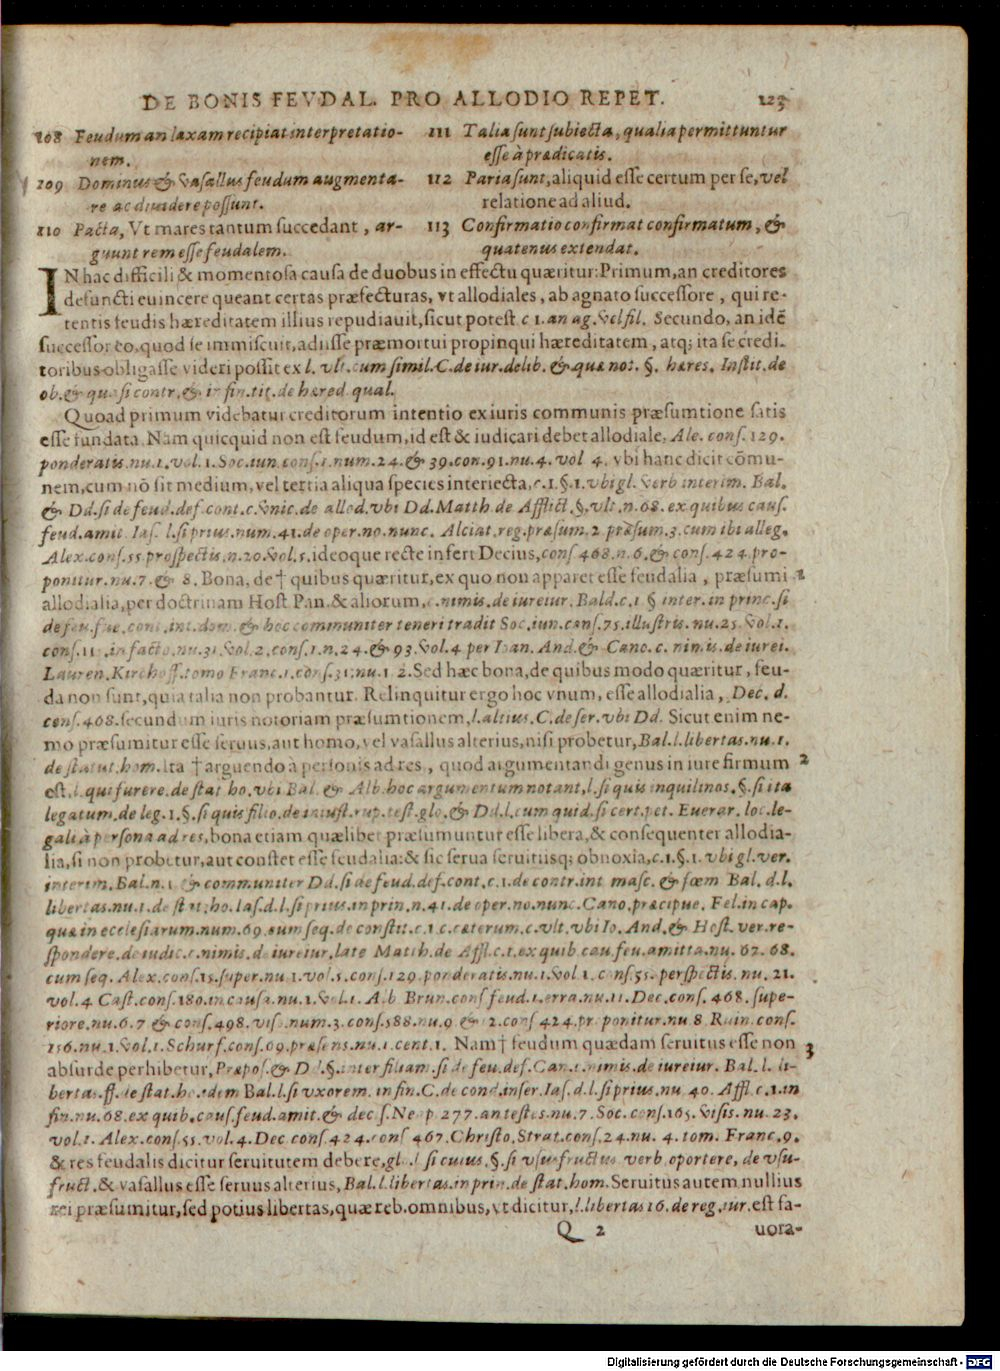 DE BONIS FEVDAL. PRO ALLODIO REPET. 123
108 Feudum an laxam recipiat interpretatio-
nem.
109 Dominus & vasallus feudum augmenta-
re ac diuidere possunt.
110 Pacta, Vt mares tantum succedant, ar-
guunt rem esse feudalem.
111 Talia sunt subiecta, qualia permittuntur
esse à prædicatis.
112 Paria sunt, aliquid esse certum per se, vel
relatione ad aliud.
113 Confirmatio confirmat confirmatum, &
quatenus extendat.
IN hac difficili & momentosa causa de duobus in effectu quæritur: Primum, an creditores
defuncti euincere queant certas præfecturas, vt allodiales, ab agnato successore, qui re-
tentis feudis hæreditatem illius repudiauit, sicut potest c 1. an ag. vel fil. Secundo, an idē
successor eo, quod se immiscuit, adiisse præmortui propinqui hæreditatem, atq; ita se credi-
toribus obligasse videri possit ex l. vlt. cum simil. C. de iur. delib. & quæ not. §. hæres. Instit. de
ob. & quasi contr. & in fin. tit. de hæred. qual.
Quoad primum videbatur creditorum intentio ex iuris communis præsumtione satis
esse fundata. Nam quicquid non est feudum, id est & iudicari debet allodiale, Ale. cons. 129.
ponderatis. nu. 1. vol. 1. Soc. iun. cons. 1. num. 24. & 39. con. 91. nu. 4. vol 4. vbi hanc dicit cōmu-
nem, cum nō sit medium, vel tertia aliqua species interiecta, c. 1. §. 1. vbi gl. verb interim. Bal.
& Dd. si de feud. def. cont. c. vnic. de allod. vbi Dd. Matth. de Afflict. §. vlt. n. 68. ex quibus caus.
feud. amit. Ias. l. si prius. num. 41. de oper. no. nunc. Alciat. reg. præsum. 2 præsum. 3. cum ibi alleg.
Alex. cons. 55. prospectis. n. 20. vol. 5. ideoque recte infert Decius, cons 468. n. 6. & cons. 424. pro-
ponitur. nu. 7. & 8. Bona, de † quibus quæritur, ex quo non apparet esse feudalia, præsumi 1
allodialia, per doctrinam Host. Pan. & aliorum, c. nimis. de iureiur. Bald. c. 1 § inter. in princ. si
de feu. fue. cont. int. dom. & hoc communiter teneri tradit Soc. iun. cons. 75. illustris. nu. 25. vol. 1.
cons. 11. in facto. nu. 31. vol. 2. cons. 1. n. 24. & 93. vol. 4 per Ioan. And. & Cano. c. nimis. de iurei.
Lauren. Kirchoff. tomo Franc. 1. cons. 31. nu. 1 2. Sed hæc bona, de quibus modo quæritur, feu-
da non sunt, quia talia non probantur. Relinquitur ergo hoc vnum, esse allodialia, Dec. d.
cons. 468. secundum iuris notoriam præsumtionem, l. altius. C. de ser. vbi Dd. Sicut enim ne-
mo præsumitur esse seruus, aut homo, vel vasallus alterius, nisi probetur, Bal. l. libertas. nu. 1.
de statut. hom. Ita † arguendo à personis ad res, quod argumentandi genus in iure firmum 2
est, l. qui furere. de stat ho. vbi Bal. & Alb. hoc argumentum notant, l. si quis inquilinos. §. si ita
legatum. de leg. 1. §. si quis filio. de iniust. rup. test. glo. & Dd. l. cum quid. si cert. pet. Euerar. loc. le-
gali à persona ad res, bona etiam quælibet præsumuntur esse libera, & consequenter allodia-
lia, si non probetur, aut constet esse feudalia: & sic serua seruitiisq; obnoxia, c. 1. §. 1. vbi gl. ver.
interim. Bal. n. 1 & communiter Dd. si de feud. def. cont. c. 1. de contr. int masc. & fœm Bal. d. l.
libertas. nu. 1. de stat. ho. Ias. d. l. si prius. in prin. n. 41. de oper. no. nunc. Cano. præcipue. Fel. in cap.
quæ in ecclesiarum. num. 69. cum seq. de constit. c. 1. c. cæterum. c. vlt. vbi Io. And. & Host. ver. re-
spondere. de iudic. c. nimis. de iureiur. late Matth. de Affl. c. 1. ex quib cau. feu. amitta. nu. 67. 68.
cum seq. Alex. cons. 15. super. nu. 1. vol. 5. cons. 129. ponderatis. nu. 1. vol 1. cons. 55. perspectis. nu. 21.
vol. 4 Cast. cons. 180. in causa. nu. 1. vol. 1. Alb Brun. cons feud. 1. erra. nu. 11. Dec. cons. 468. supe-
riore. nu. 6. 7 & cons. 498. viso. num. 3. cons. 588. nu. 9 & 12. cons 424. proponitur. nu 8 Ruin. cons.
156. nu. 1. vol. 1. Schurf. cons. 69. præsens. nu. 1. cent. 1. Nam † feudum quædam seruitus esse non 3
absurde perhibetur, Præpos. & Dd. §. inter filiam. si de feu. def. Can. c. nimis. de iureiur. Bal. l. li-
bertas. ff. de stat. ho. idem Bal. l. si vxorem. in fin. C. de cond. inser. Ias. d. l. si prius. nu 40. Affl c. 1. in
fin. nu. 68. ex quib. caus. feud. amit. & decis. Neap 277. an testes. nu. 7. Soc. cons. 165. visis. nu. 23.
vol. 1. Alex. cons. 55. vol. 4. Dec. cons. 424. cons 467. Christo. Strat. cons. 24. nu. 4. tom. Franc. 9.
& res feudalis dicitur seruitutem debere, glo. l si cuius. §. si vsusfructus verb. oportere, de vsu-
fruct. & vasallus esse seruus alterius, Bal. l. libertas. in prin. de stat. hom. Seruitus autem nullius
rei præsumitur, sed potius libertas, quæ reb. omnibus, vt dicitur, l. libertas 16. de reg. iur. est fa-
Q 2 uora-
Digitalisierung gefördert durch die Deutsche Forschungsgemeinschaft - DFG